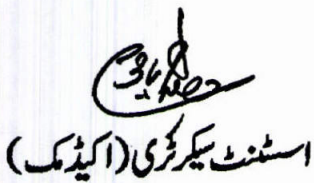 اسسٹنٹ سیکرٹری (اکیڈمک)